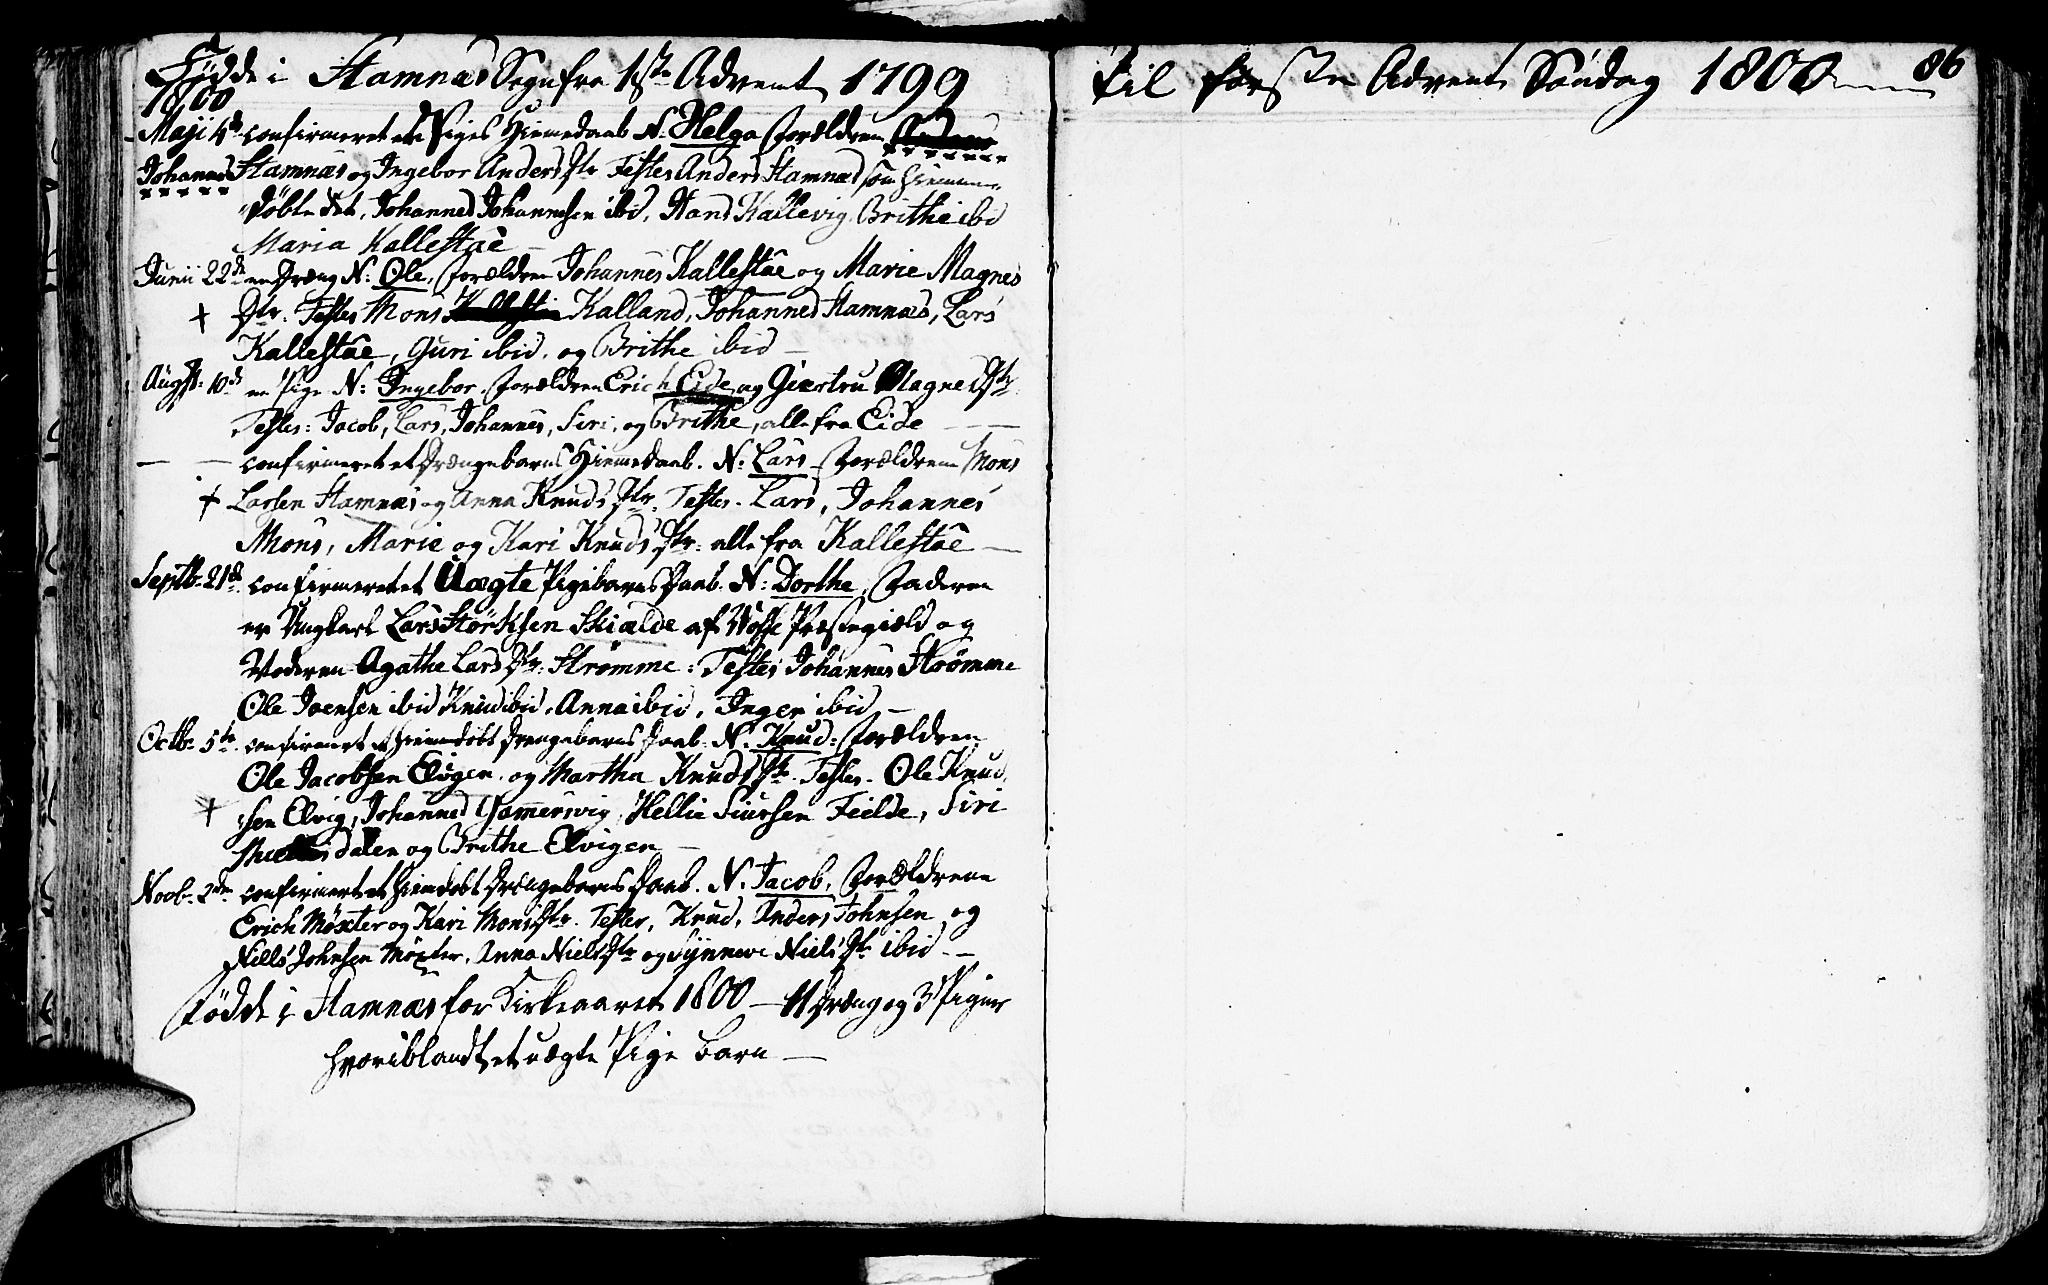 Fødde i Stamnæs Sogn fra 1ste Advent 1799
til første Advents Søndag 1800
86
1800
Maji 4de confirmeret et Piges Hiemmedaab N: Helga Forældrene
Johannes Stamnæs og Ingebor Andersdtr Testes Anders Stamnæs som hiemme-
døbte det, Johannes Johannesen ibid, Hans Kallevig, Brithe ibid
Maria Kallestæe
Junii 22de en Dreng N: Ole, Forældrene Johannes Kallestæe og Marie Magnes
† Dtr. Testes Mons Kalland, Johannes Stamnæs, Lars
Kallestæe, Guri ibid. og Brithe ibid
Augst: 10de en Pige N: Ingebor Forældrene Erich Eide og Giertru Magnesdtr
Testes: Jacob, Lars, Johannes, Siri, og Brithe, alle fra Eide
— — confirmeret et Drængebarns Hiemmedaab. N: Lars Forældrene Mons
† Larsen Stamnæs og Anna Knudsdtr. Testes. Lars, Johannes
Mons, Marie og Kari Knudsdtr: alle fra Kallestæe
Septb. 21de confirmeret et Uægte Pigebarns Daab. N: Dorthe, Faderen
er Ungkarl Lars Størksen Skielde af Wosse Præstegield og
Moderen Agathe Larsdtr: Strømme: Testes Johannes Strømme
Ole Joensen ibid Knud ibid, Anna ibid, Inger ibid
Octb: 5te confirmeret et hiemdøbt Drengebarns Daab. N. Knud: Forældrene
Ole Jacobsen Elvigen og Martha Knudsdtr. Testes. Ole Knud
† sen Elvig, Johannes Gamersvig, Hellie Siursen Feilde, Siri
dalen og Brithe Elvigen
Novb. 2den confirmeret et hiemdøbt Drengebarns Daab. N. Jacob, Forældrene
Erich Møxter og Kari Monsdtr. Testes, Knud, Anders Johnsen og
Niels Johnsen Møxter, Anna Nielsdtr og Synneve Nielsdtr ibid
Fødde i Stamnæs for Kirkeaaret 1800 — 4 Dreng og 3 Piger
hvoriblandt et uægte Pige barn